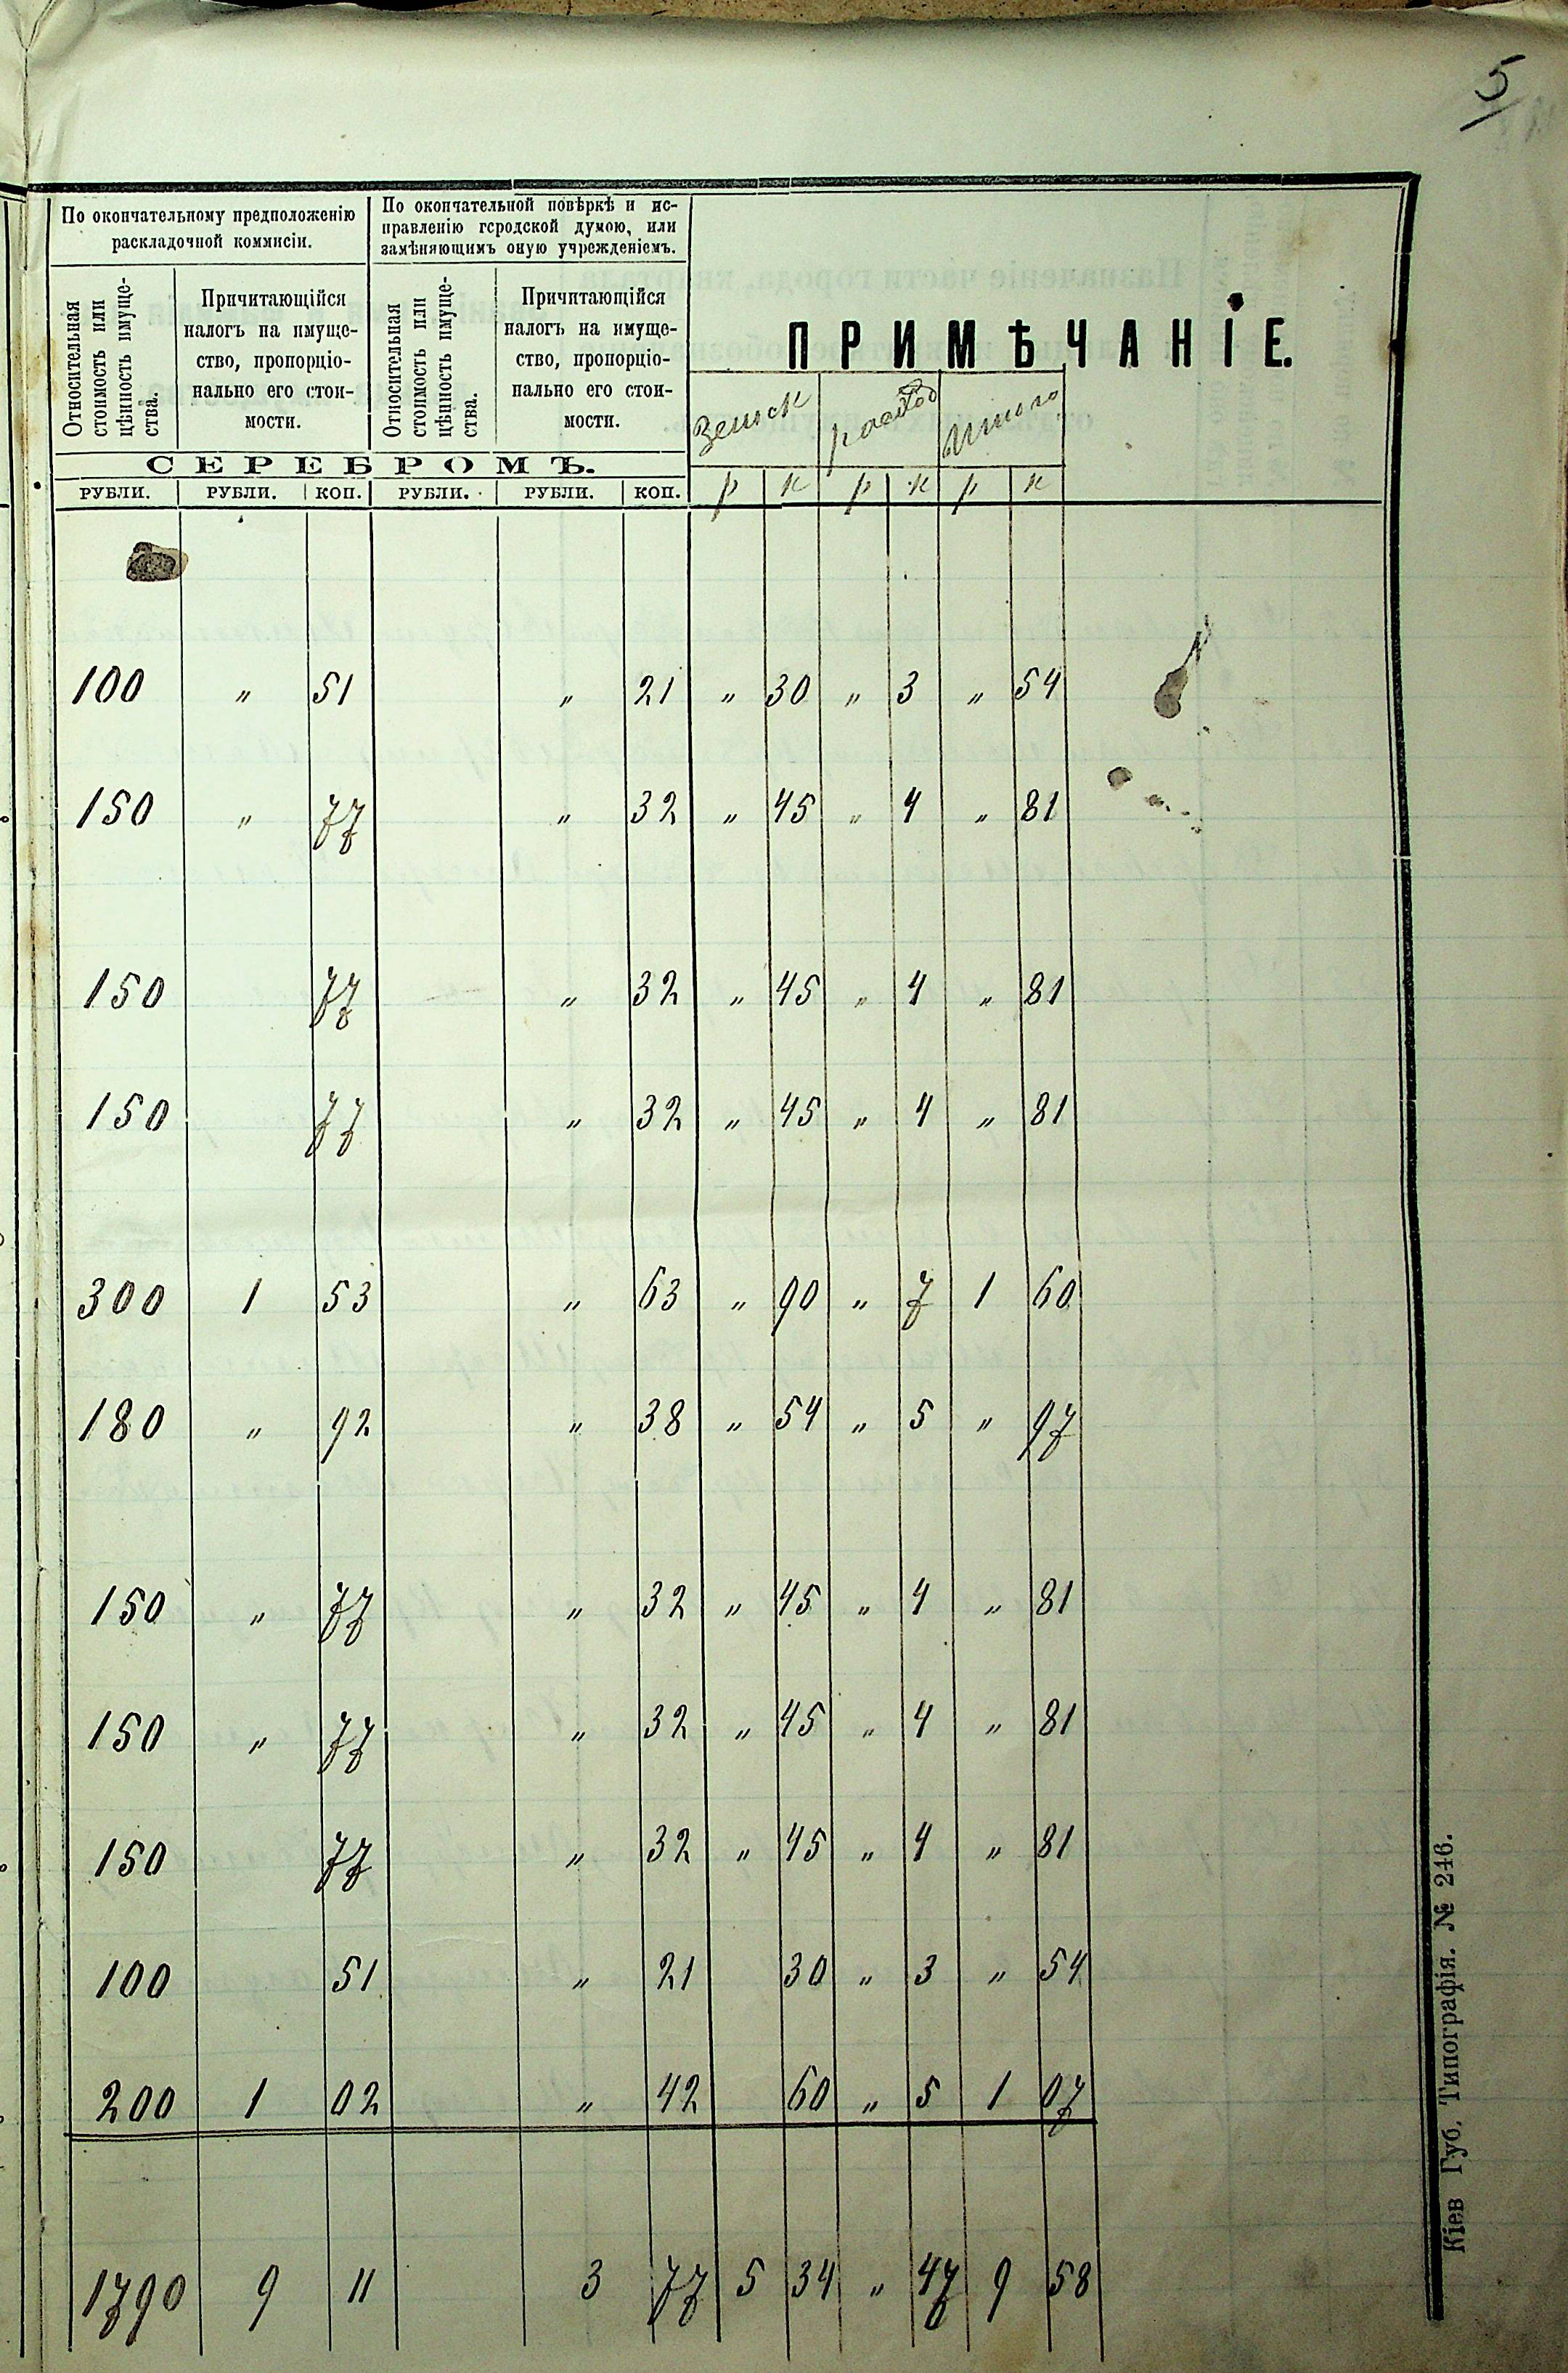 5
По окончательному предположенію
раскладочной коммисіи.
По окончательной повѣркѣ и ис-
правленію городской думою, или
замѣняющимъ оную учрежденіемъ.
ПРИМѢЧАНІЕ.
Относительная
стоимость или
цѣнность имуще-
ства.
Причитающійся
налогъ на имуще-
ство, пропорціо-
нально его стои-
мости.
Относительная
стоимость или
цѣнность имуще-
ства.
Причитающійся
налогъ на имуще-
ство, пропорціо-
нально его стои-
мости.
земск расход Итого
СЕРЕБРОМЪ.
РУБЛИ. РУБЛИ. КОП. РУБЛИ. РУБЛИ. КОП. р к р к р к
100 „ 51 „ 21 „ 30 „ 3 „ 54
150 „ 77 „ 32 „ 45 „ 4 „ 81
150 77 „ 32 „ 45 „ 4 „ 81
150 77 „ 32 „ 45 „ 4 „ 81
300 1 53 „ 63 „ 90 „ 7 1 60
180 „ 92 „ 38 „ 54 „ 5 „ 97
150 „ 77 „ 32 „ 45 „ 4 „ 81
150 „ 77 „ 32 „ 45 „ 4 „ 81
150 77 „ 32 „ 45 „ 4 „ 81
100 51 „ 21 30 „ 3 „ 54
200 1 02 „ 42 60 „ 5 1 07
1790 9 11 3 77 5 34 „ 47 9 58
Кіев Губ. Типографія. № 246.